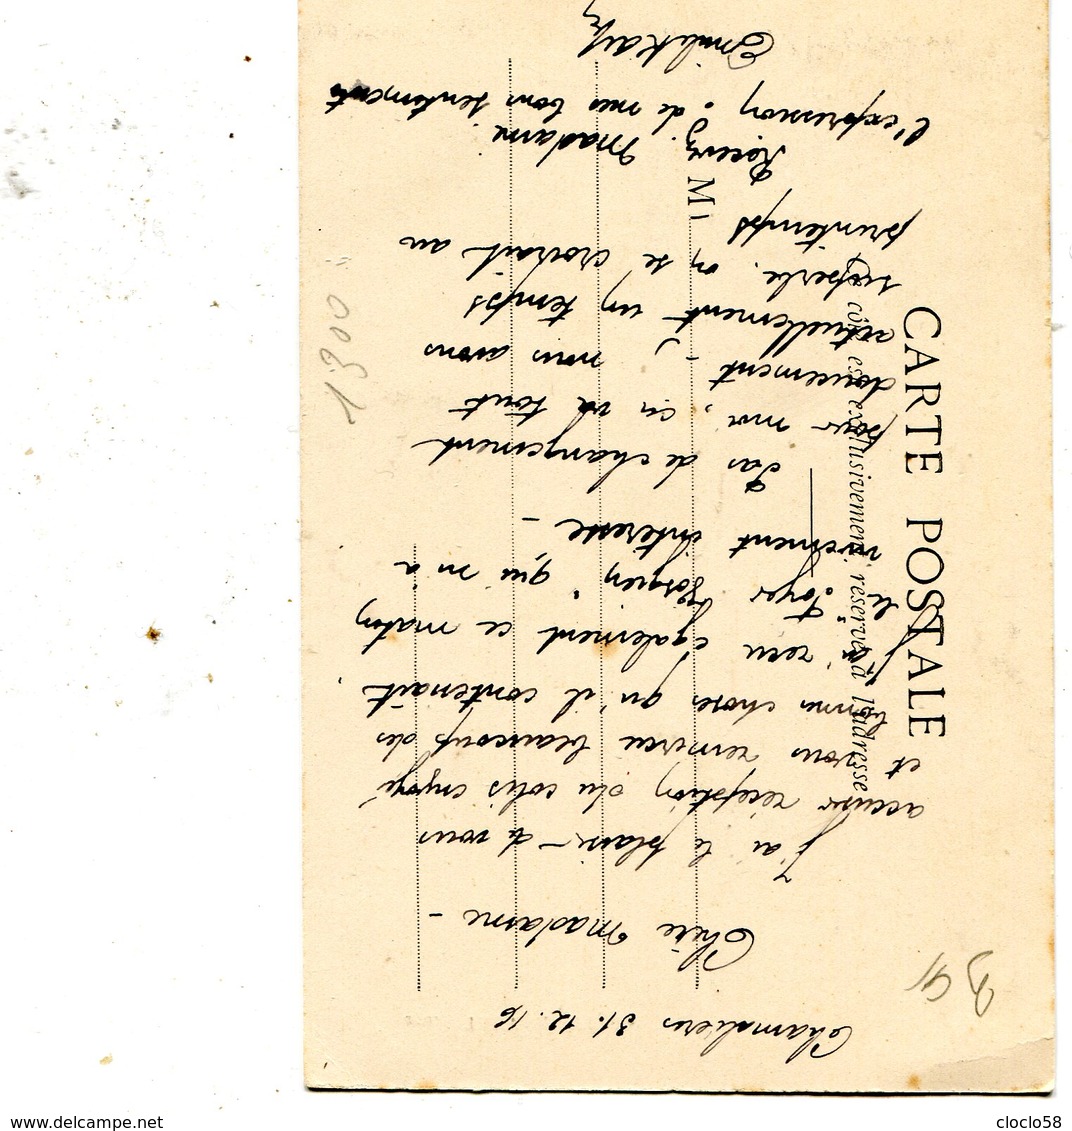 Chamalières 31.12.16
Chère Madame –
J'ai le plaisir de vous
accuser réception du colis envoyé
et vous remercie beaucoup des
bonnes choses qu'il contenait.
J'ai reçu également ce matin
le "Foyer" qui m'a
vivement intéressé –
Pas de changement
pour moi, ça va tout
doucement –, nous avons
actuellement un temps
superbe. on se croirait au
printemps
Recevez, Madame
l'expression de mes bons sentiments
CARTE POSTALE
Ce côté est exclusivement réservé à l'adresse
M
1300
delcampe.net
cloclo58